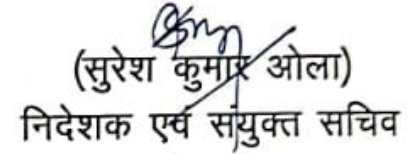 (सुरेश कुमार ओला)
निदेशक एवं संयुक्त सचिव